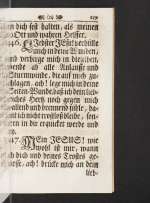 an dich fest halten, als meinen
Gott und wahren Helffer.
146. Liebster JEsu! verhülle
mich in deine Wunden,
und verberge mich in dieselben,
wende ab alle Anläuffe und
Sturmwinde, die auf mich zu-
schlagen, ach! lege mich in deine
Seiten-Wunde, daß ich dem lieb-
reiches Hertz noch gegen mich
wallend und brennend fühle, da-
mit ich nicht trostloß bleibe, son-
dern in dir erquicket werde und
147. MEin JESUS! wie
wohl ist mir, wann
ich dich und deines Trostes ge-
niesse, ach! drücke mich an dein
lieb-